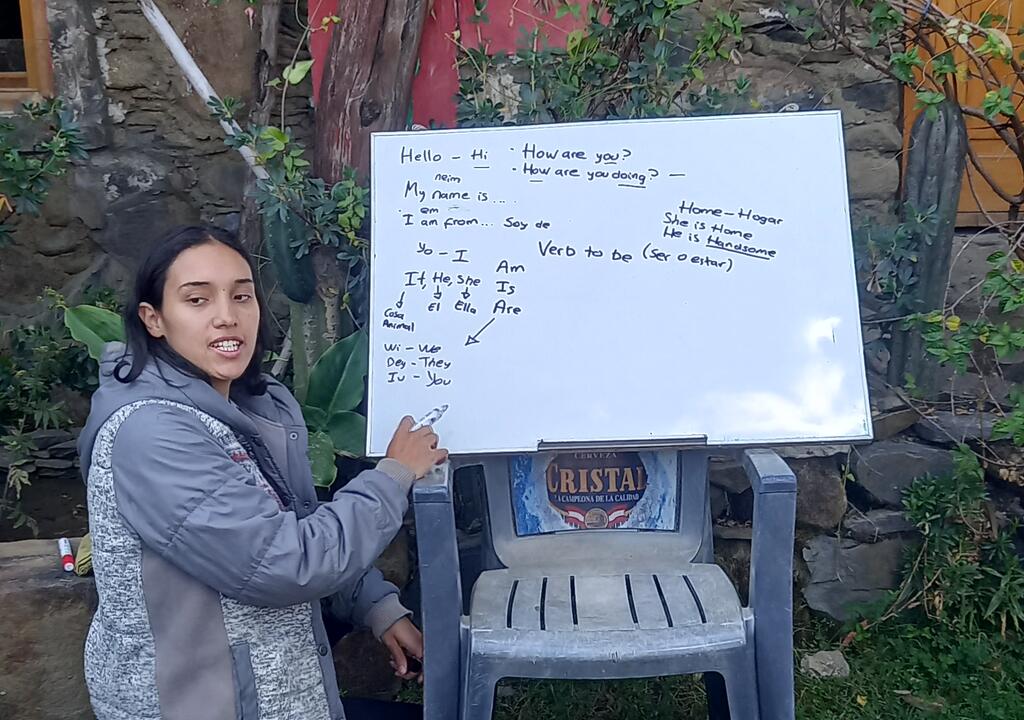 Hello - Hi · How are you?
· How are you doing? —
neim
My name is ....
am
I am from... Soy de
Home - Hogar
She is Home
He is Handsome
Yo - I
Verb to be (Ser o estar)
Am
It, He, She Is
Cosa El Ella Are
Animal
Wi - We
Dey - They
Iu - You
CERVEZA
CRISTAL
LA CAMPEONA DE LA CALIDAD